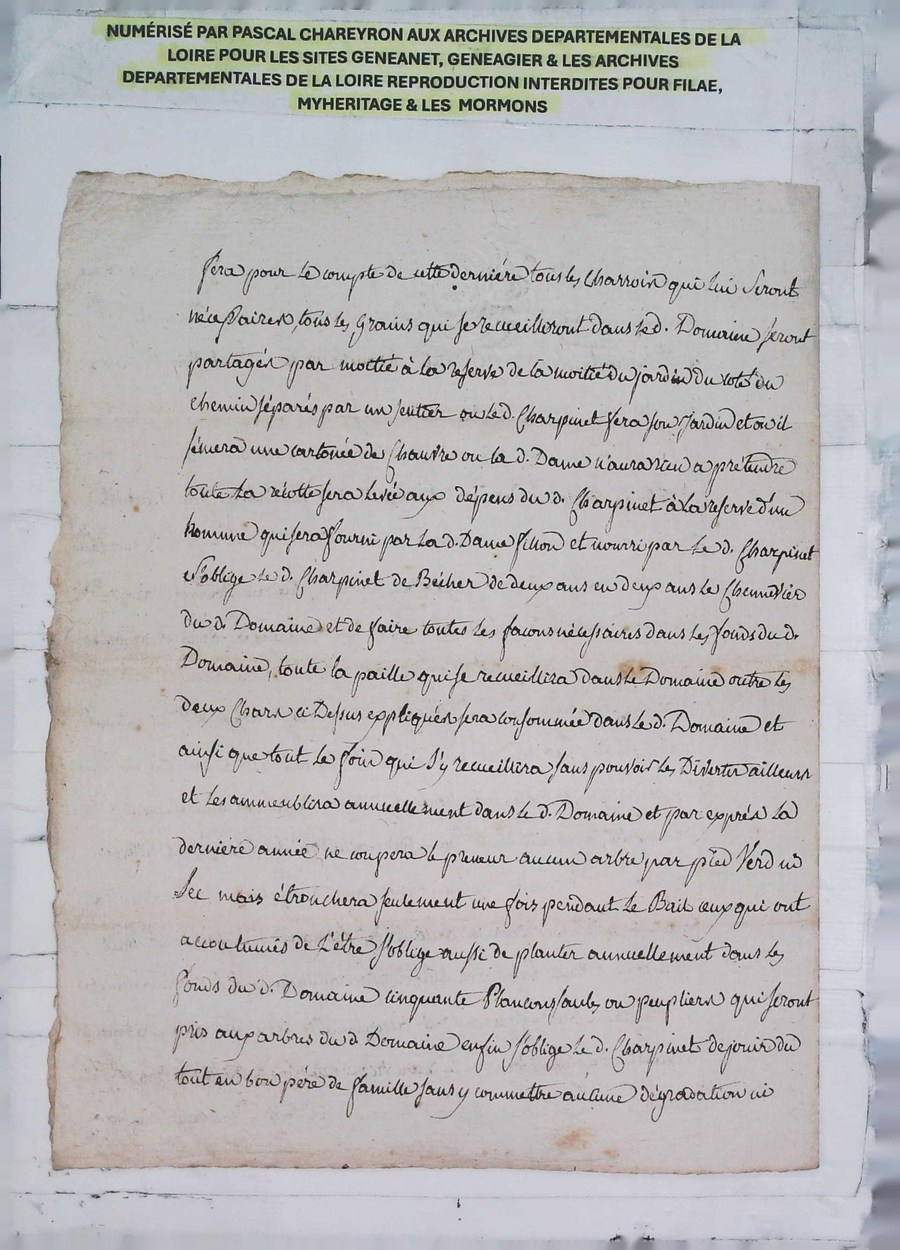 NUMÉRISÉ PAR PASCAL CHAREYRON AUX ARCHIVES DEPARTEMENTALES DE LA
LOIRE POUR LES SITES GENEANET, GENEAGIER & LES ARCHIVES
DEPARTEMENTALES DE LA LOIRE REPRODUCTION INTERDITES POUR FILAE,
MYHERITAGE & LES MORMONS
fera pour le compte de cette derniére tous les Charrois qui lui Seront
nécessaires, tous les grains qui se recueilliront dans led. Domaine seront
partagés par moitié à la reserve de la moitié du jardin du coté du
chemin séparés par un sentier ou led. Charpinet fera son jardin et ou il
sémera une cartonée de Chanvre ou la d. Dame n'aura rien a prétendre
toute la récolte sera levée aux dépens du d. Charpinet à la reserve d'un
homme qui sera fourni par la d. Dame fillon et nourri par le d. Charpinet
s'oblige le d. Charpinet de Bécher de deux ans en deux ans le Chennevier
du d. Domaine et de faire toutes les facons nécessaires dans les fonds du d.
Domaine, toute la paille qui se recueillira dans le Domaine outre les
deux Chars ci Dessus expliqués sera consommée dans le d. Domaine et
ainsi que tout le foin qui s'y recueillira sans pouvoir les Divertir ailleurs
et les ammeublira annuellement dans le d. Domaine et par exprés la
derniere année ne coupera le preneur aucun arbre par pied Verd ni
Sec mais étronchera seulement une fois pendant le Bail ceux qui ont
accoutumés de l'être s'oblige aussi de planter annuellement dans les
fonds du d. Domaine cinquante Plancons saules ou peupliers qui seront
pris aux arbres du d Domaine enfin s'oblige le d. Charpinet de jouir du
tout en bon pére de famille sans y commettre aucune dégradation ni